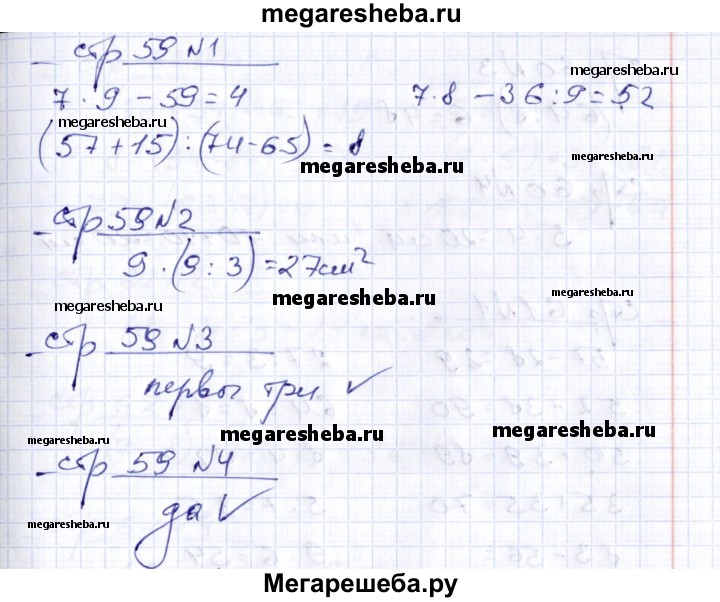 megaresheba.ru
стр 59 №1
megaresheba.ru
7 · 9 - 59 = 4
7 · 8 - 36 : 9 = 52
megaresheba.ru
(57 + 15) : (74 - 65) = 8
megaresheba.ru
megaresheba.ru
стр 59 №2
9 · (9 : 3) = 27 см²
megaresheba.ru
megaresheba.ru
стр 59 №3
megaresheba.ru
первы три ✓
megaresheba.ru
megaresheba.ru
megaresheba.ru
стр 59 №4
megaresheba.ru
да ✓
megaresheba.ru
megaresheba.ru
Мегарешеба.ру